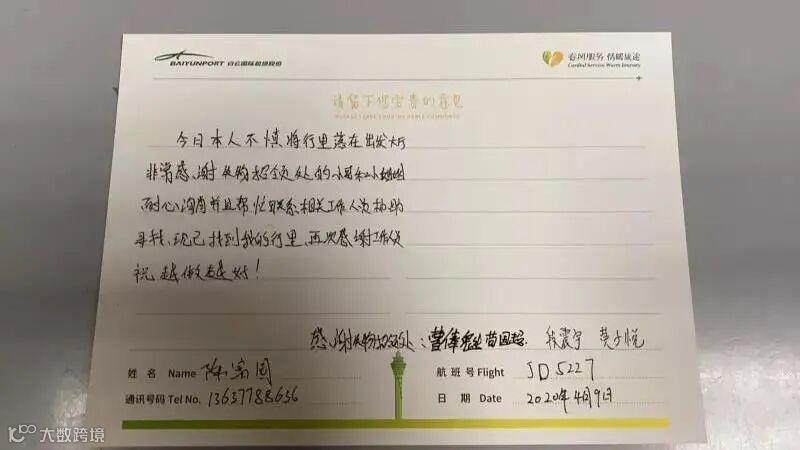 BAIYUNPORT 白云国际机场股份
春风服务 情暖旅途
Cordial Service Warm Journey
请留下您宝贵的意见
PLEASE LEAVE YOUR VALUABLE COMMENTS
今日本人不慎将行李落在出发大厅
非常感谢失物招领处的小哥和小姐姐
耐心询问并且帮忙联系相关工作人员协助
寻找,现已找到我的行李,再次感谢工作人员
祝越做越好!
感谢失物招领处:
姓名 Name 陈
航班号 Flight JD5227
通讯号码 Tel No. 13637788656
日期 Date 2020年4月9日
大数跨境